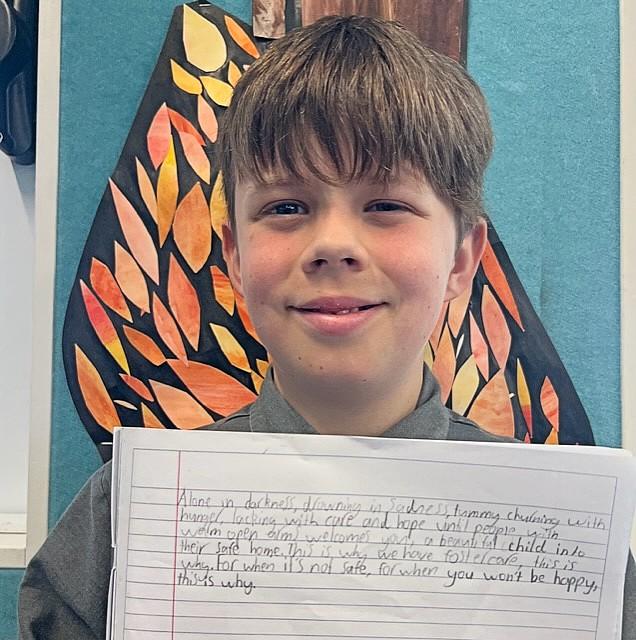 Alone in darkness, drowning in Sadness, tummy churning with
hunger, lacking with care and hope until people with
warm open arms welcomes you, a beautiful child into
their safe home. This is why we have fostercare, this is
why. For when it's not safe, for when you won't be happy,
this is why.